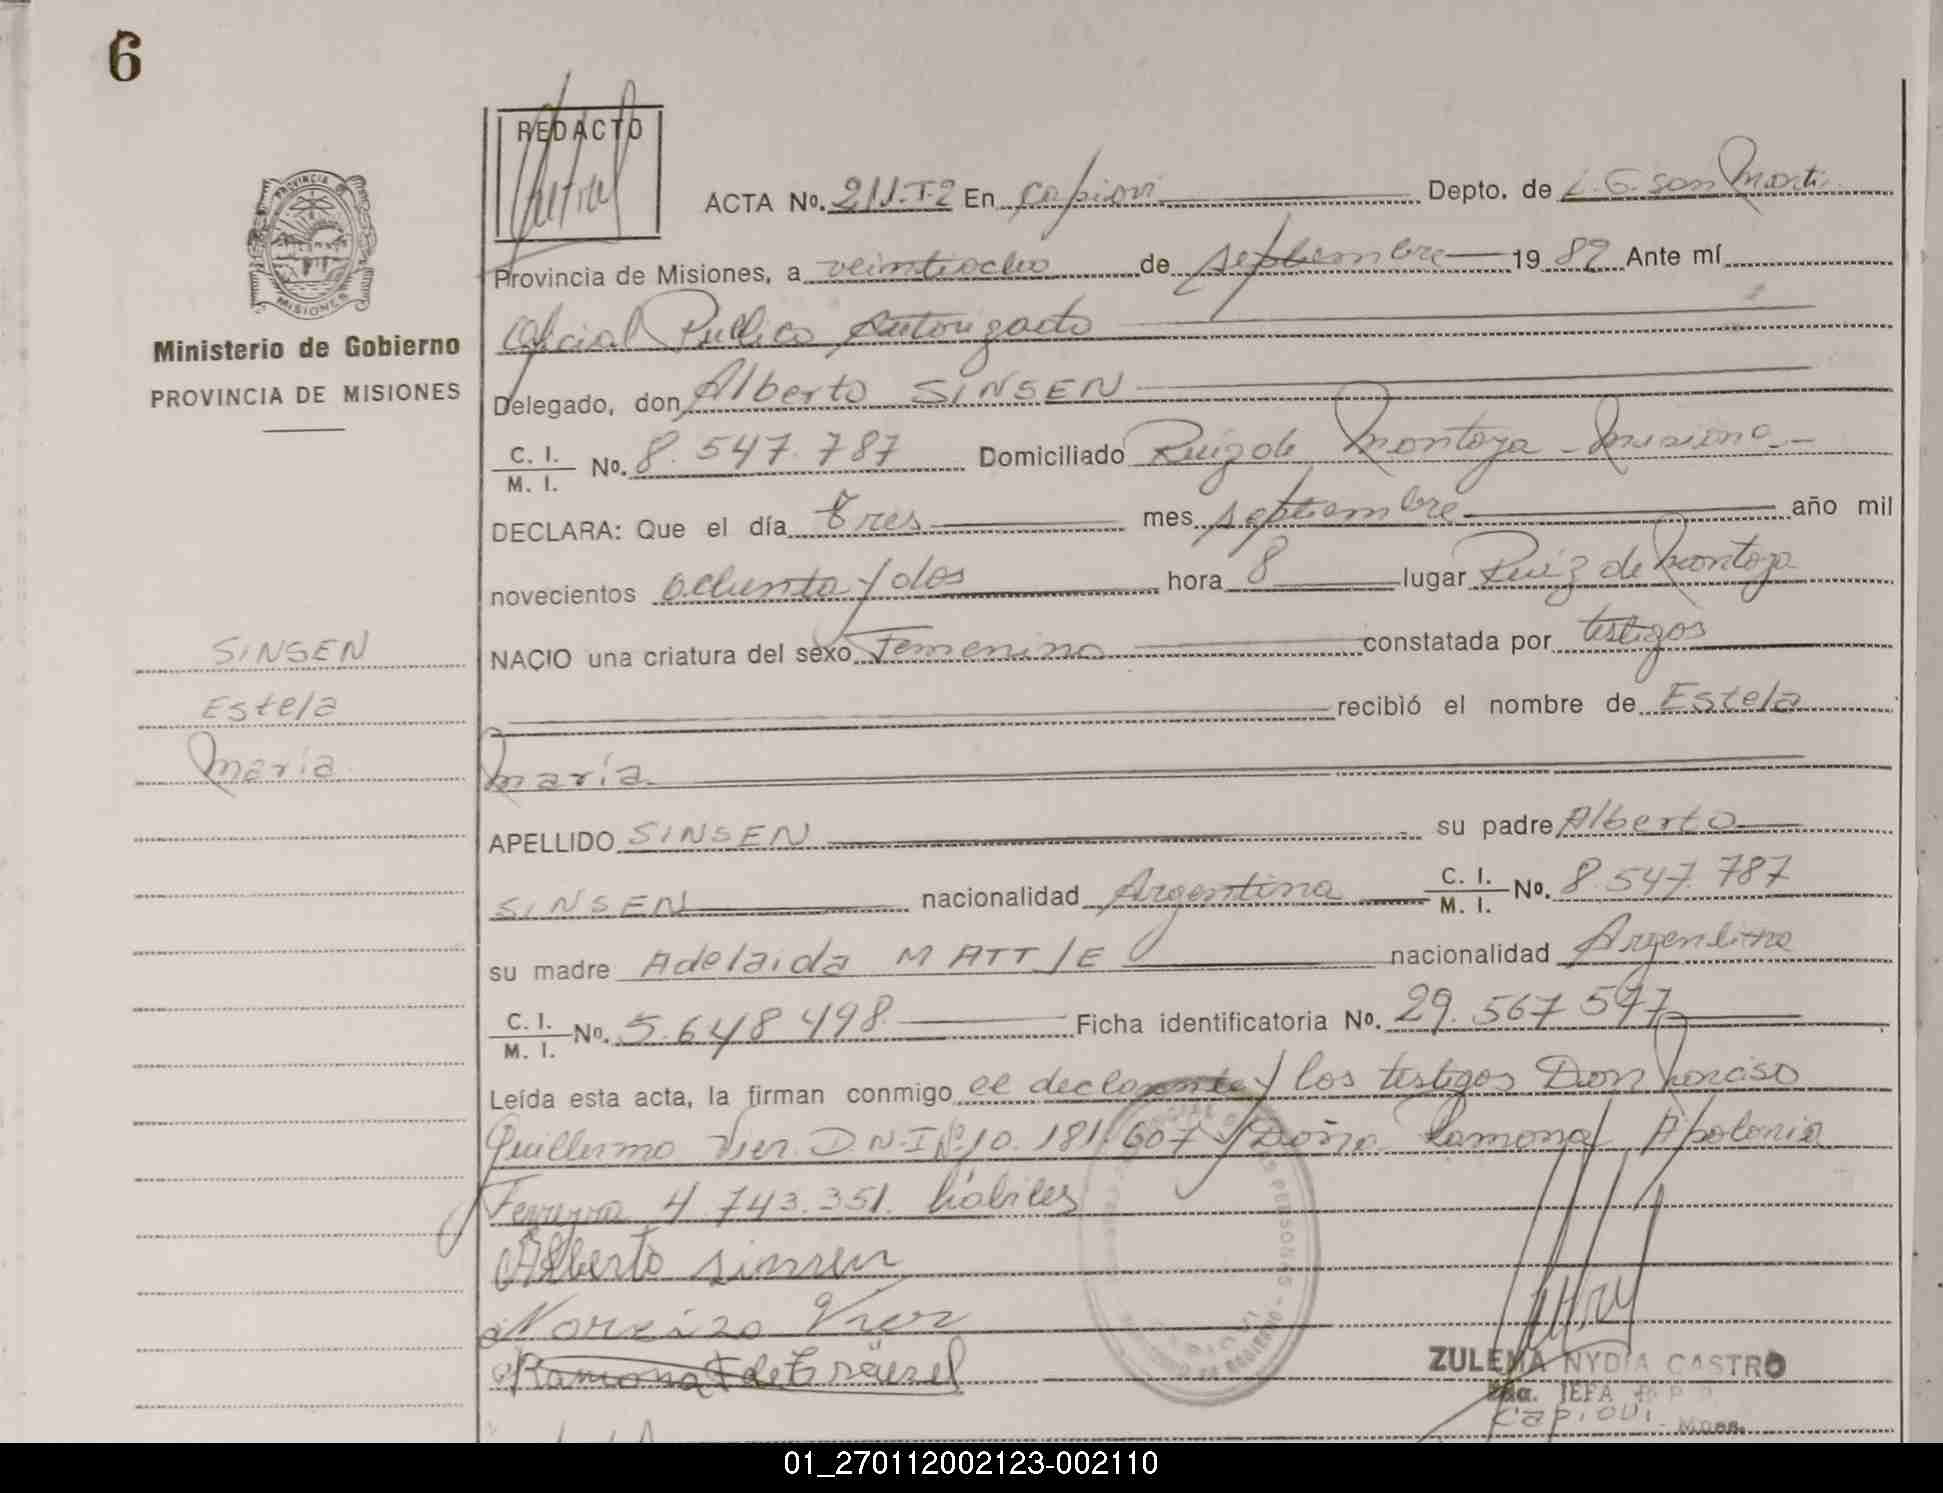 6
REDACTO
ACTA Nº. 211.T.2 En Capiovi Depto. de L.G. San Martin
Provincia de Misiones, a veintiocho de septiembre 1982 Ante mí
Oficial Publico Autorizado
Ministerio de Gobierno
PROVINCIA DE MISIONES
Delegado, don Alberto SINSEN
C. I.
M. I. Nº. 8.547.787 Domiciliado Ruiz de Montoya - Misiones -
DECLARA: Que el día Tres mes septiembre año mil
novecientos ochenta y dos hora 8 lugar Ruiz de Montoya
SINSEN
Estela
María
NACIO una criatura del sexo Femenino constatada por testigos
recibió el nombre de Estela
María
APELLIDO SINSEN su padre Alberto
SINSEN nacionalidad Argentina C. I. M. I. Nº. 8.547.787
su madre Adelaida MATTJE nacionalidad Argentina
C. I.
M. I. Nº. 5.648.498 Ficha identificatoria Nº. 29.567.597
Leída esta acta, la firman conmigo el declarante y los testigos Don Narciso
Guillermo Vier. D.N.I Nº 10.181.607 y Doña Ramona Apolonia
Ferreyra 4.743.351. hábiles
Alberto Sinsen
Narcizo Vier
Ramona F de
ZULEMA NYDIA CASTRO
JEFA
Capiovi - Mnes.
01_270112002123-002110